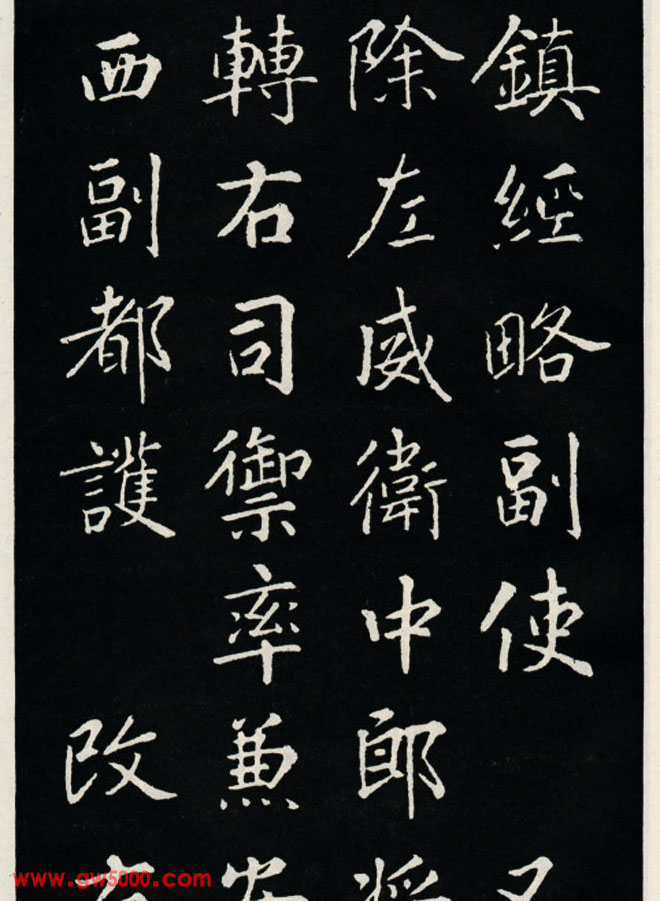 鎮經略副使 又
除左威衛中郎將
轉右司禦率兼安
西副都護 改
www.gw5000.com